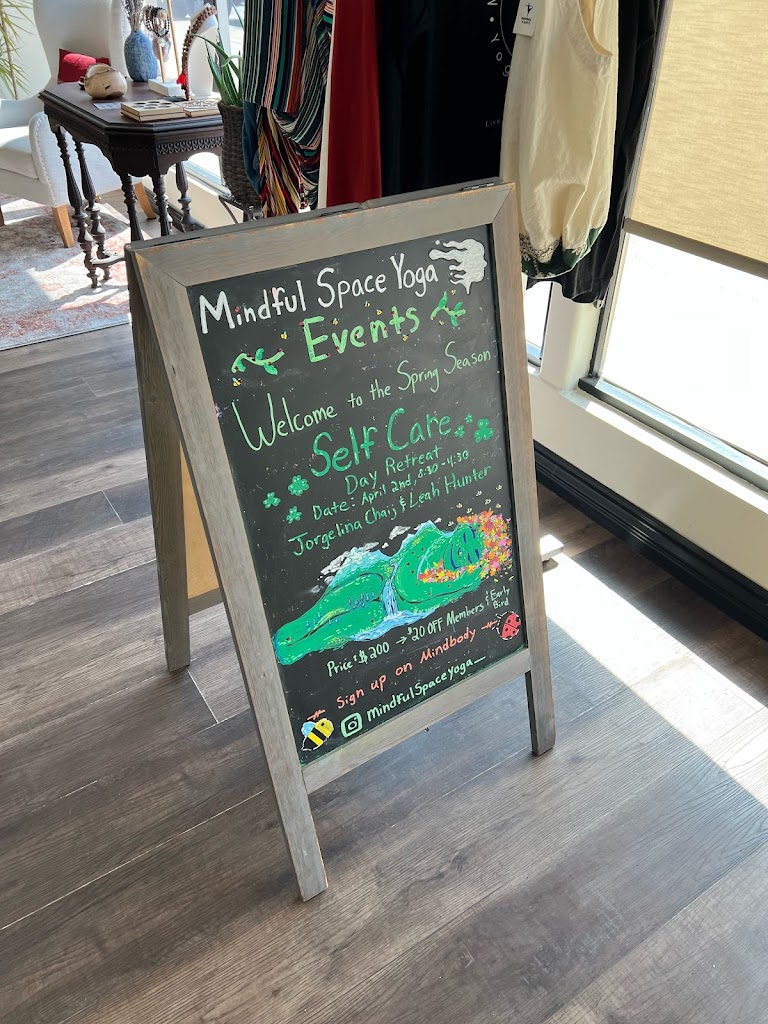 Mindful Space Yoga
Events
Welcome to the Spring Season
Self Care
Day Retreat
Date: April 2nd, 8:30-4:30
Jorgelina Chaij & Leah Hunter
Price: $200 → $20 OFF Members & Early Bird
Sign up on Mindbody
mindfulSpaceyoga_